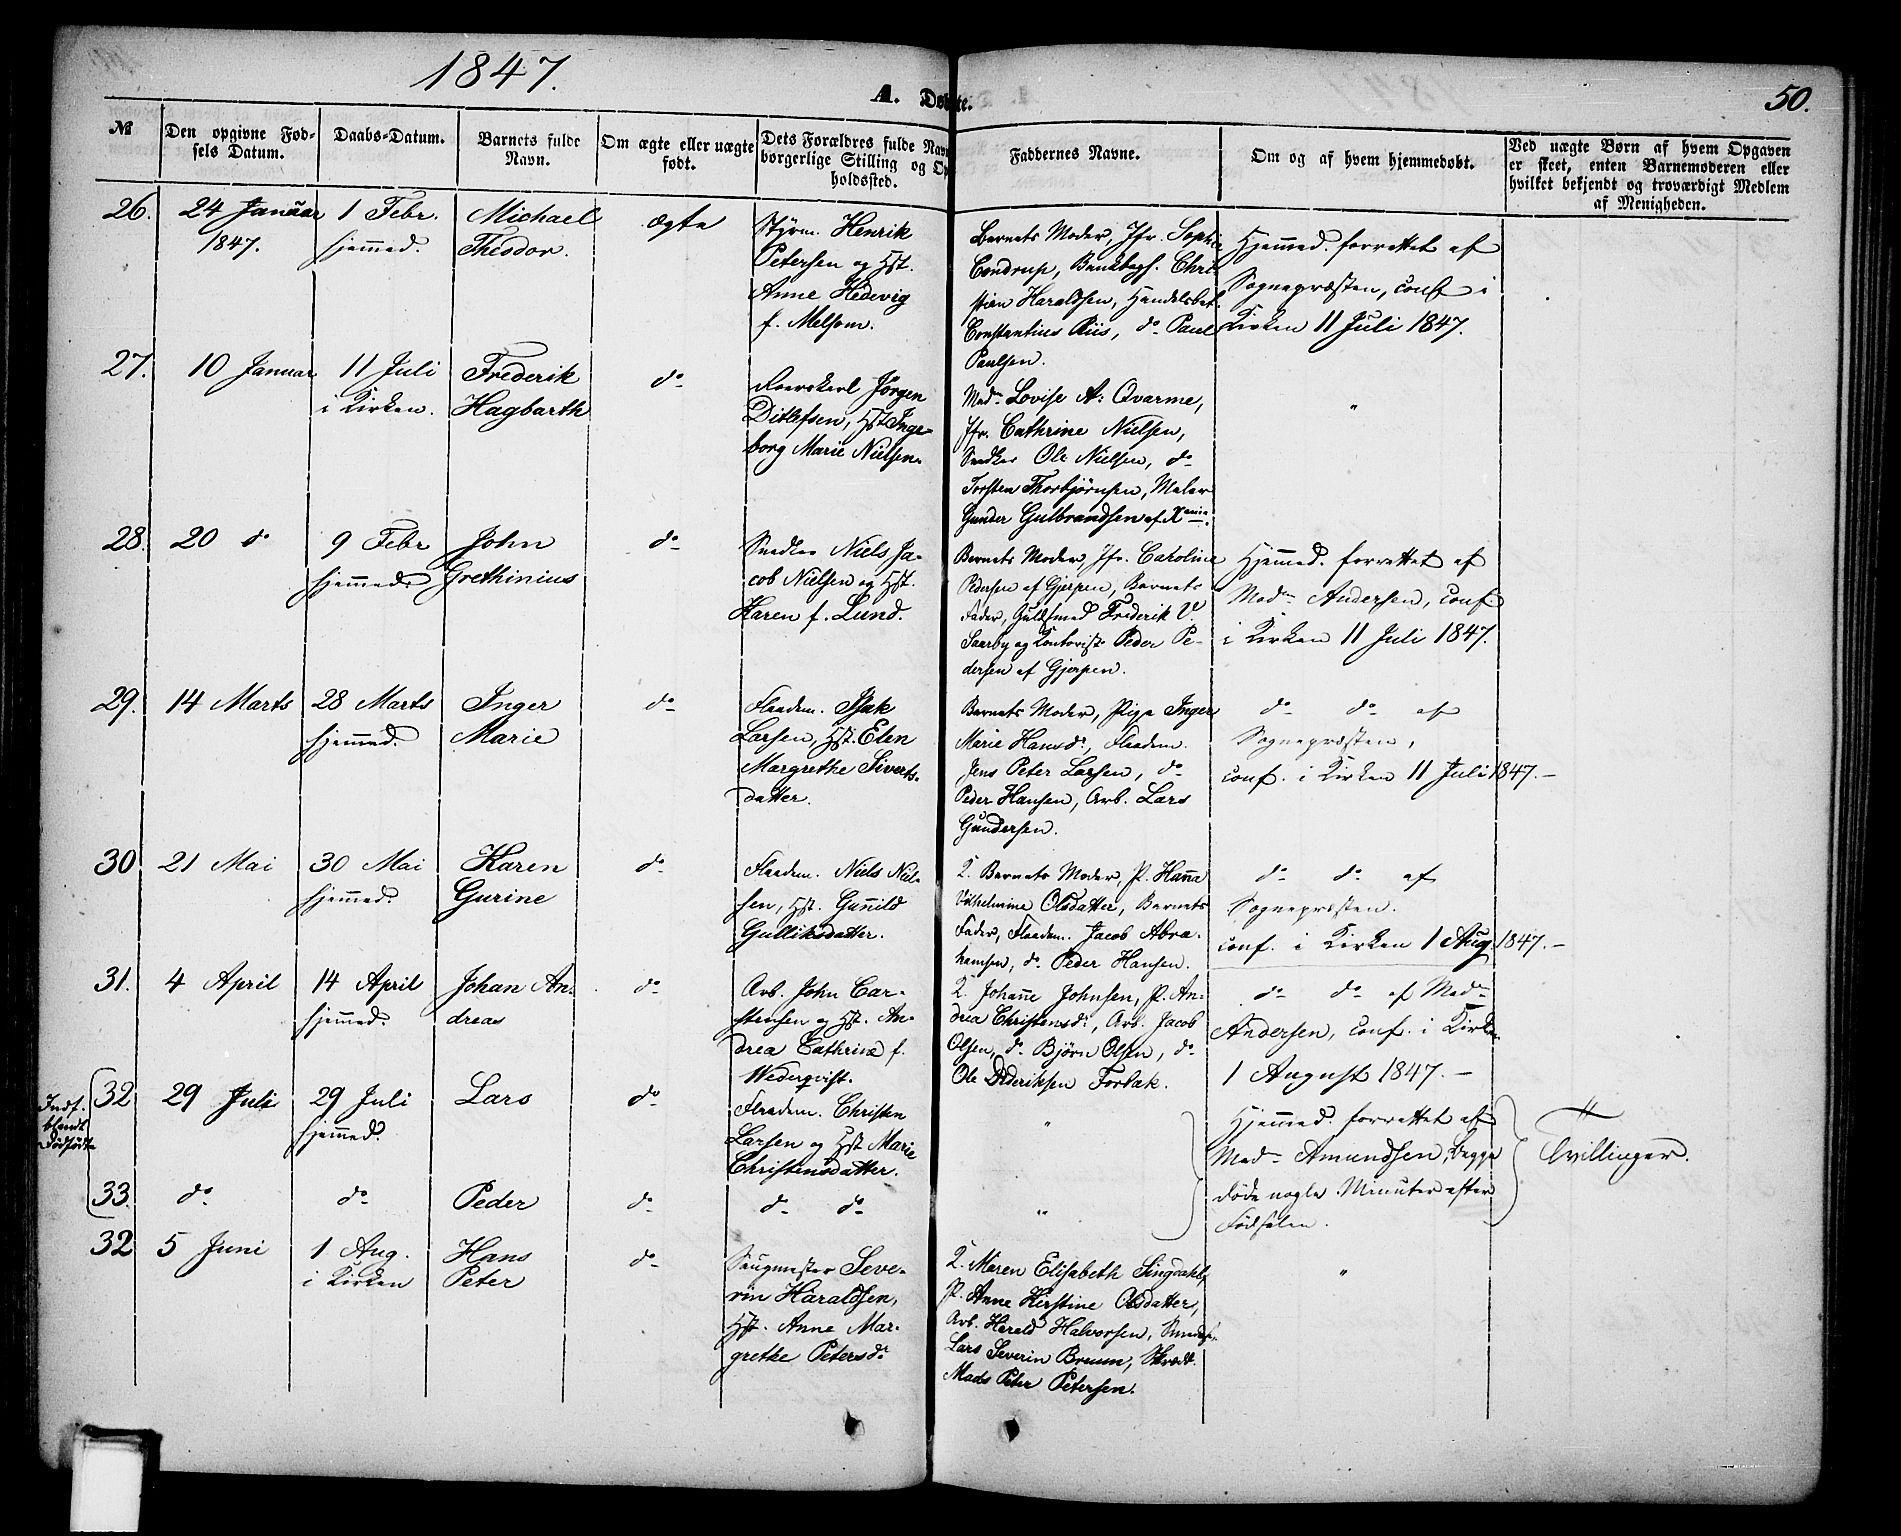 1847.
A. Døbte.
50.
No
Den opgivne Fød-
sels Datum.
Daabs-Datum.
Barnets fulde
Navn.
Om ægte eller uægte
født.
Dets Forældres fulde Navn
borgerlige Stilling og Op
holdssted.
Faddernes Navne.
Om og af hvem hjemmedøbt.
Ved uægte Børn af hvem Opgaven
er skeet, enten Barnemoderen eller
hvilket bekjendt og troværdigt Medlem
af Menigheden.
26.
24 Januar
1847.
1 Febr.
hjemmed.
Michael
Theodor.
ægte
Styrm. Henrik
Petersen og Hst.
Anne Hedevig
f. Melsom.
Barnets Moder, Jfr. Sophie
Condrup, Bankbogh. Chri
stian Haraldsen, Handelsbet.
Constantius Riis, do Paul
Paulsen.
Hjemmed. forrettet af
Sognepræsten, conf i
Kirken 11 Juli 1847.
27.
10 Januar
11 Juli
i Kirken.
Frederik
Hagbarth
do
Jørgen
Ditlefsen, Hst. Inge-
borg Marie Nielsen.
Madm Lovise A: Qvarme,
Jfr. Cathrine Nielsen,
Snedker Ole Nielsen, do
Torsten Thorbjørnsen, Maler
Gunder Gulbrandsen af Xania.
"
28.
20 do
9 Febr
hjemmed.
John
Grethinius
do
Snedker Niels Ja-
cob Nielsen og Hst.
Karen f. Lund.
Barnets Moder, Jfr. Caroline
Pedersen af Gjerpen, Barnets
Fader, Guldsmed Frederik V.
Saarby og Kontorist Peder Pe-
dersen af Gjerpen.
Hjemmed. forrettet af
Madm Andersen, conf
i Kirken 11 Juli 1847.
29.
14 Marts
28 Marts
hjemmed.
Inger
Marie
do
Flaadem. Isak
Larsen, Hst. Elen
Margrethe Siverts-
datter.
Barnets Moder, Pige Inger
Marie Hansdr, Flaadem.
Jens Peter Larsen, do
Peder Hansen, Arb. Lars
Gundersen.
do do af
Sognepræsten,
conf. i Kirken 11 Juli 1847.
30
21 Mai
30 Mai
hjemmed.
Karen
Gurine
do
Flaadem. Niels Niel-
sen, Hst. Gunild
Gulliksdatter.
Barnets Moder, P. Hanna
Vilhelmine Olsdatter, Barnets
Fader, Flaadem. Jacob Abra-
hamsen, do Peder Hansen.
do do af
Sognepræsten.
conf. i Kirken 1 Aug. 1847.
31.
4 April
14 April
hjemmed.
Johan An-
dreas
do
Arb. John Car-
stensen og Hst. An-
drea Cathrine f.
Wederqvist.
Johanne Johnsen, P. An-
drea Christensdr, Arb. Jacob
Olsen, do Bjørn Olsen, do
Ole Dideriksen Forbak.
do do af Madm
Andersen, conf. i Kirken
1 August 1847.
Indf.
blandt
Dødfødte
32
29 Juli
29 Juli
hjemmed.
Lars
do
Flaadem. Christen
Larsen og Hst. Marie
Christensdatter.
"
Hjemmed. forrettet af
Madm Amundsen, begge
døde nogle Minuter efter
Fødselen.
Tvillinger.
33.
do
do
Peder
do
do do
"
32
5 Juni
1 Aug.
i Kirken
Hans
Peter
do
Saugmester Seve-
rin Haraldsen,
Hst. Anne Mar-
grethe Petersdr
Maren Elisabeth Singdahl,
P. Anne Kirstine Olsdatter,
Arb. Harald Halvorsen,
Lars Severin Bruun, Skrædr.
Mads Peter Petersen.
"